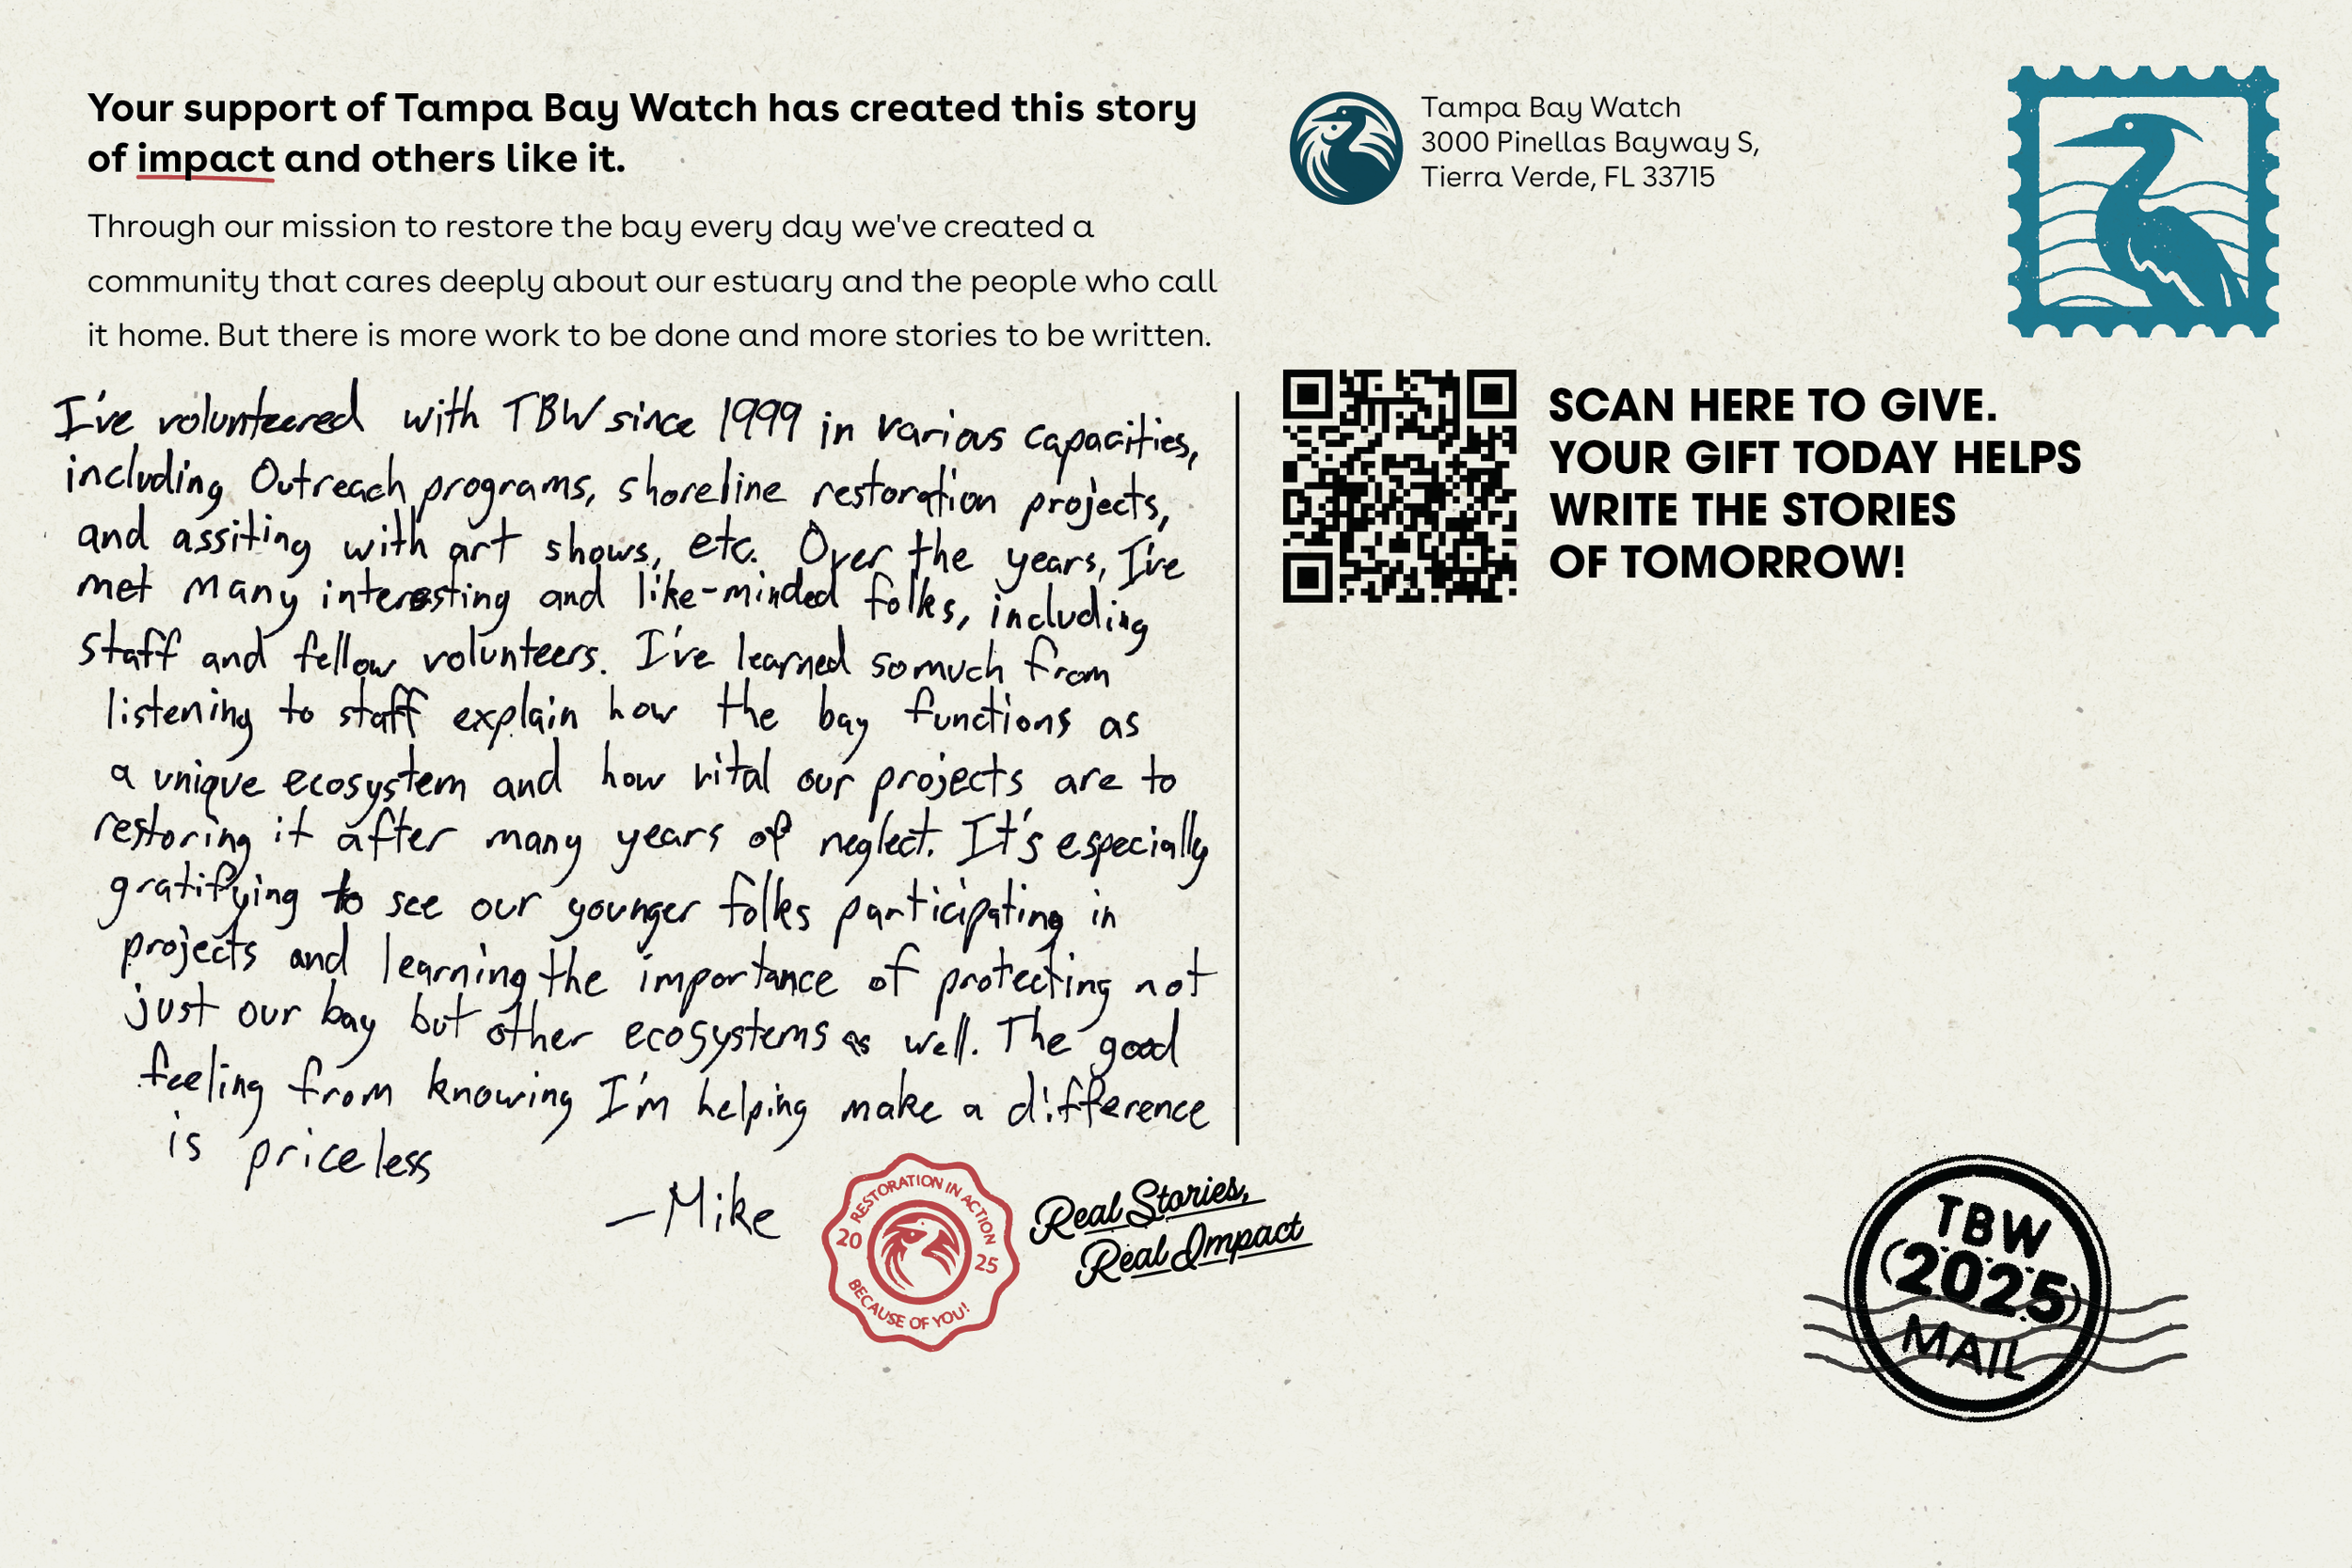 Your support of Tampa Bay Watch has created this story
of impact and others like it.
Through our mission to restore the bay every day we've created a
community that cares deeply about our estuary and the people who call
it home. But there is more work to be done and more stories to be written.
I've volunteered with TBW since 1999 in various capacities,
including Outreach programs, shoreline restoration projects,
and assiting with art shows, etc. Over the years, I've
met many interesting and like-minded folks, including
staff and fellow volunteers. I've learned so much from
listening to staff explain how the bay functions as
a unique ecosystem and how vital our projects are to
restoring it after many years of neglect. It's especially
gratifying to see our younger folks participating in
projects and learning the importance of protecting not
just our bay but other ecosystems as well. The good
feeling from knowing I'm helping make a difference
is priceless
—Mike
RESTORATION IN ACTION
20 25
BECAUSE OF YOU!
Real Stories,
Real Impact
Tampa Bay Watch
3000 Pinellas Bayway S,
Tierra Verde, FL 33715
SCAN HERE TO GIVE.
YOUR GIFT TODAY HELPS
WRITE THE STORIES
OF TOMORROW!
TBW
(2025)
MAIL